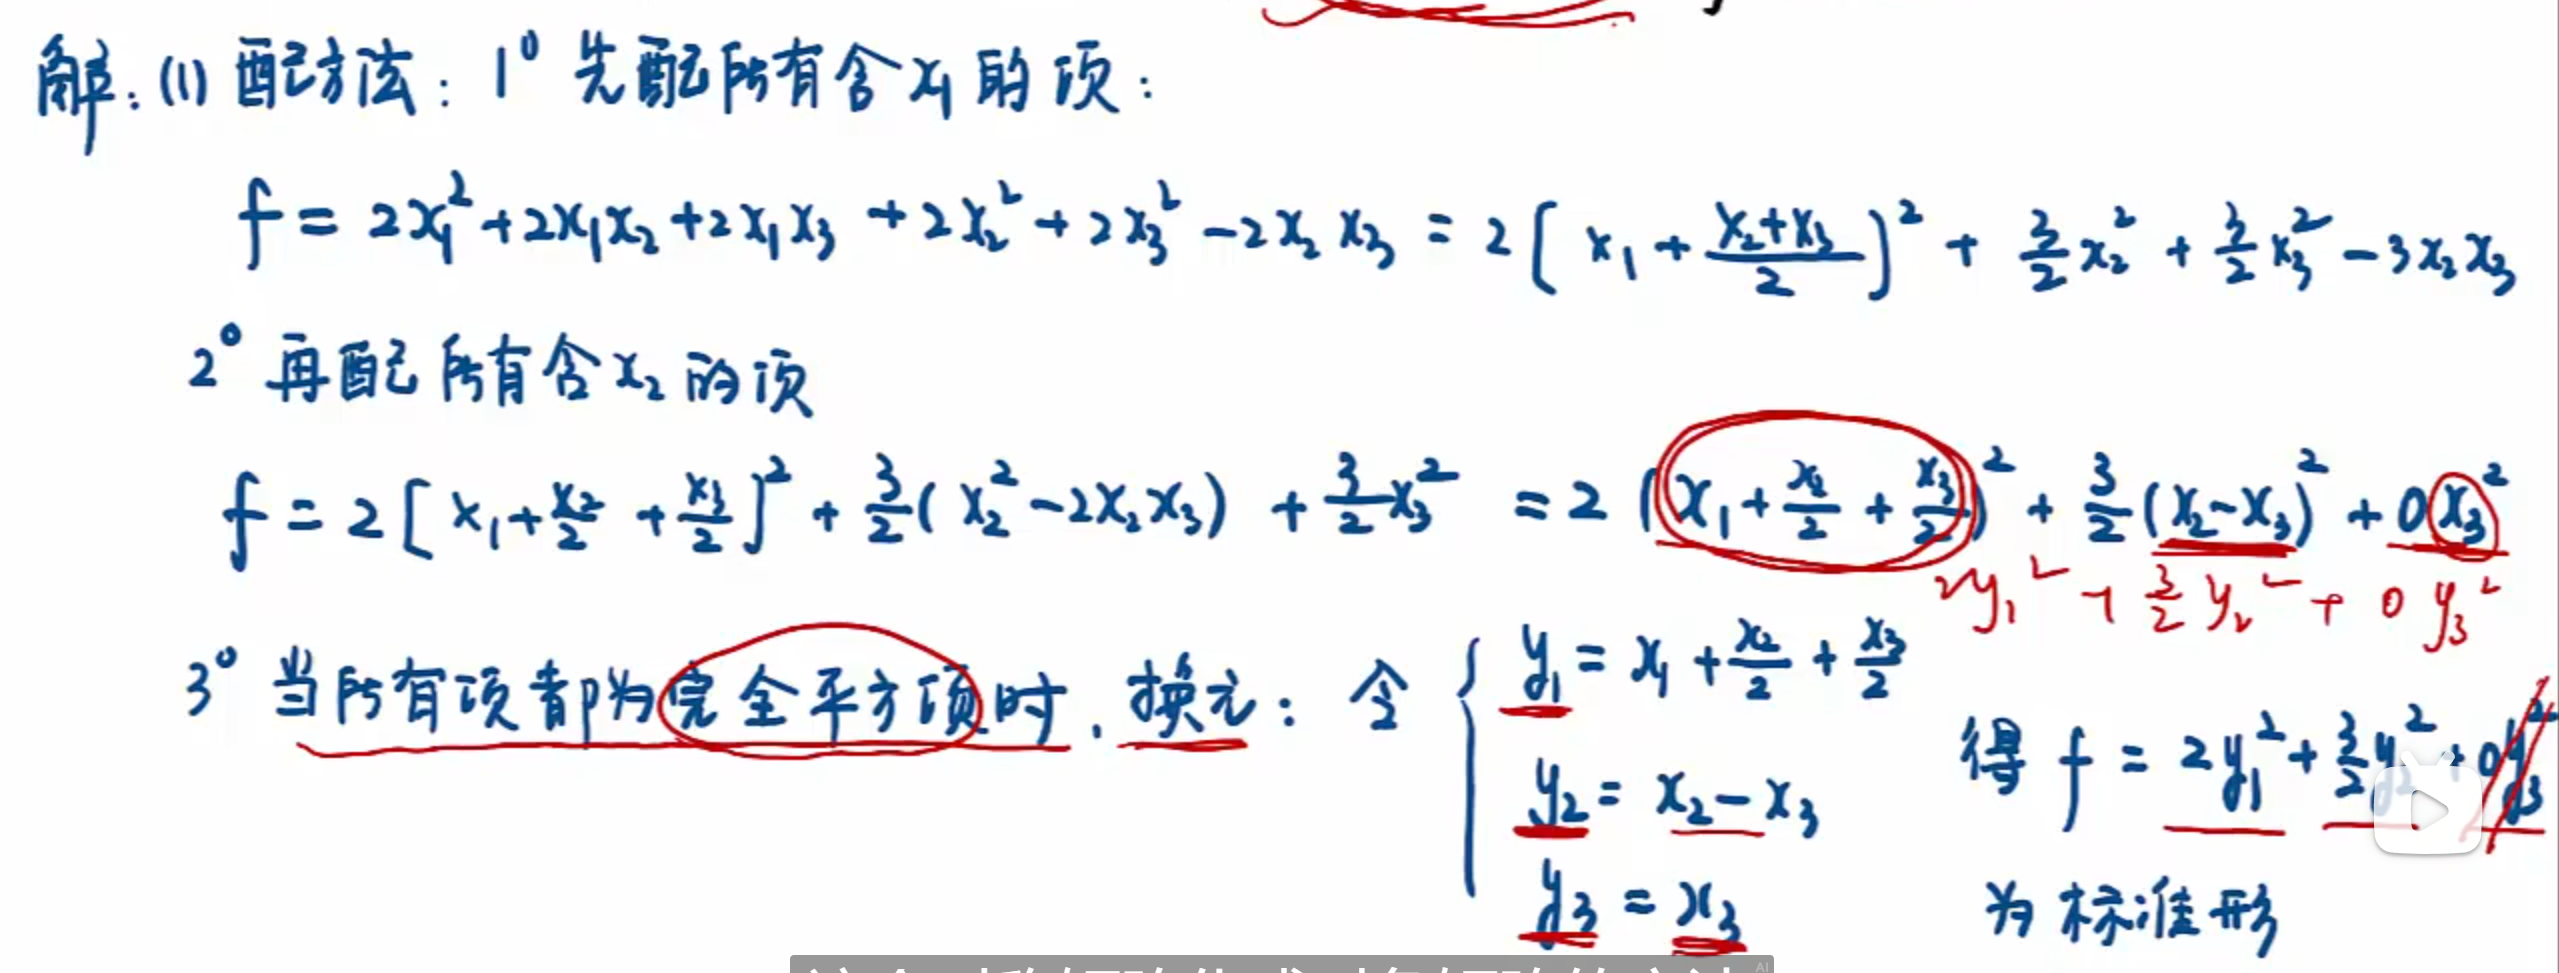 解:(1) 配方法: 1° 先配所有含x₁的项:
f = 2x₁² + 2x₁x₂ + 2x₁x₃ + 2x₂² + 2x₃² - 2x₂x₃ = 2[x₁ + (x₂+x₃)/2]² + 3/2 x₂² + 3/2 x₃² - 3x₂x₃
2° 再配所有含x₂的项
f = 2[x₁ + x₂/2 + x₃/2]² + 3/2(x₂² - 2x₂x₃) + 3/2 x₃² = 2(x₁ + x₂/2 + x₃/2)² + 3/2(x₂-x₃)² + 0x₃²
2y₁² + 3/2 y₂² + 0y₃²
3° 当所有项都为完全平方项时, 换元: 令 { y₁ = x₁ + x₂/2 + x₃/2
y₂ = x₂ - x₃
y₃ = x₃
得 f = 2y₁² + 3/2 y₂² + 0y₃²
为标准形